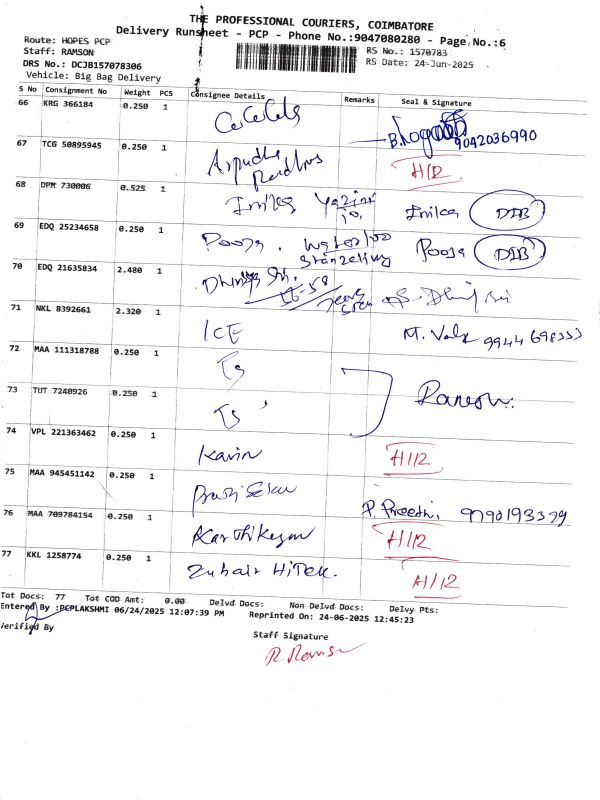 THE PROFESSIONAL COURIERS, COIMBATORE
Delivery Runsheet - PCP - Phone No.:9047080280 - Page No.:6
Route: HOPES PCP
Staff: RAMSON
DRS No.: DCJB157078306
Vehicle: Big Bag Delivery
RS No.: 1570783
RS Date: 24-Jun-2025
S No Consignment No Weight PCS Consignee Details Remarks Seal & Signature
66 KRG 366184 0.250 1 9042036990
67 TCG 50895945 0.250 1 H/R
68 DPM 730006 0.525 1
69 EDQ 25234658 0.250 1 Pooja. Pooja
70 EDQ 21635834 2.480 1
71 NKL 8392661 2.320 1 ICE M.
72 MAA 111318788 0.250 1
73 TUT 7240926 0.250 1
74 VPL 221363462 0.250 1 Kavin H/R
75 MAA 945451142 0.250 1 P. Preethi,
76 MAA 709784154 0.250 1 Karthikeyan H/R
77 KKL 1258774 0.250 1 Zuhair HiTek. H/R
Tot Docs: 77 Tot COD Amt: 0.00 Delvd Docs: Non Delvd Docs: Delvy Pts:
Entered By :PCPLAKSHMI 06/24/2025 12:07:39 PM Reprinted On: 24-06-2025 12:45:23
Verified By
Staff Signature